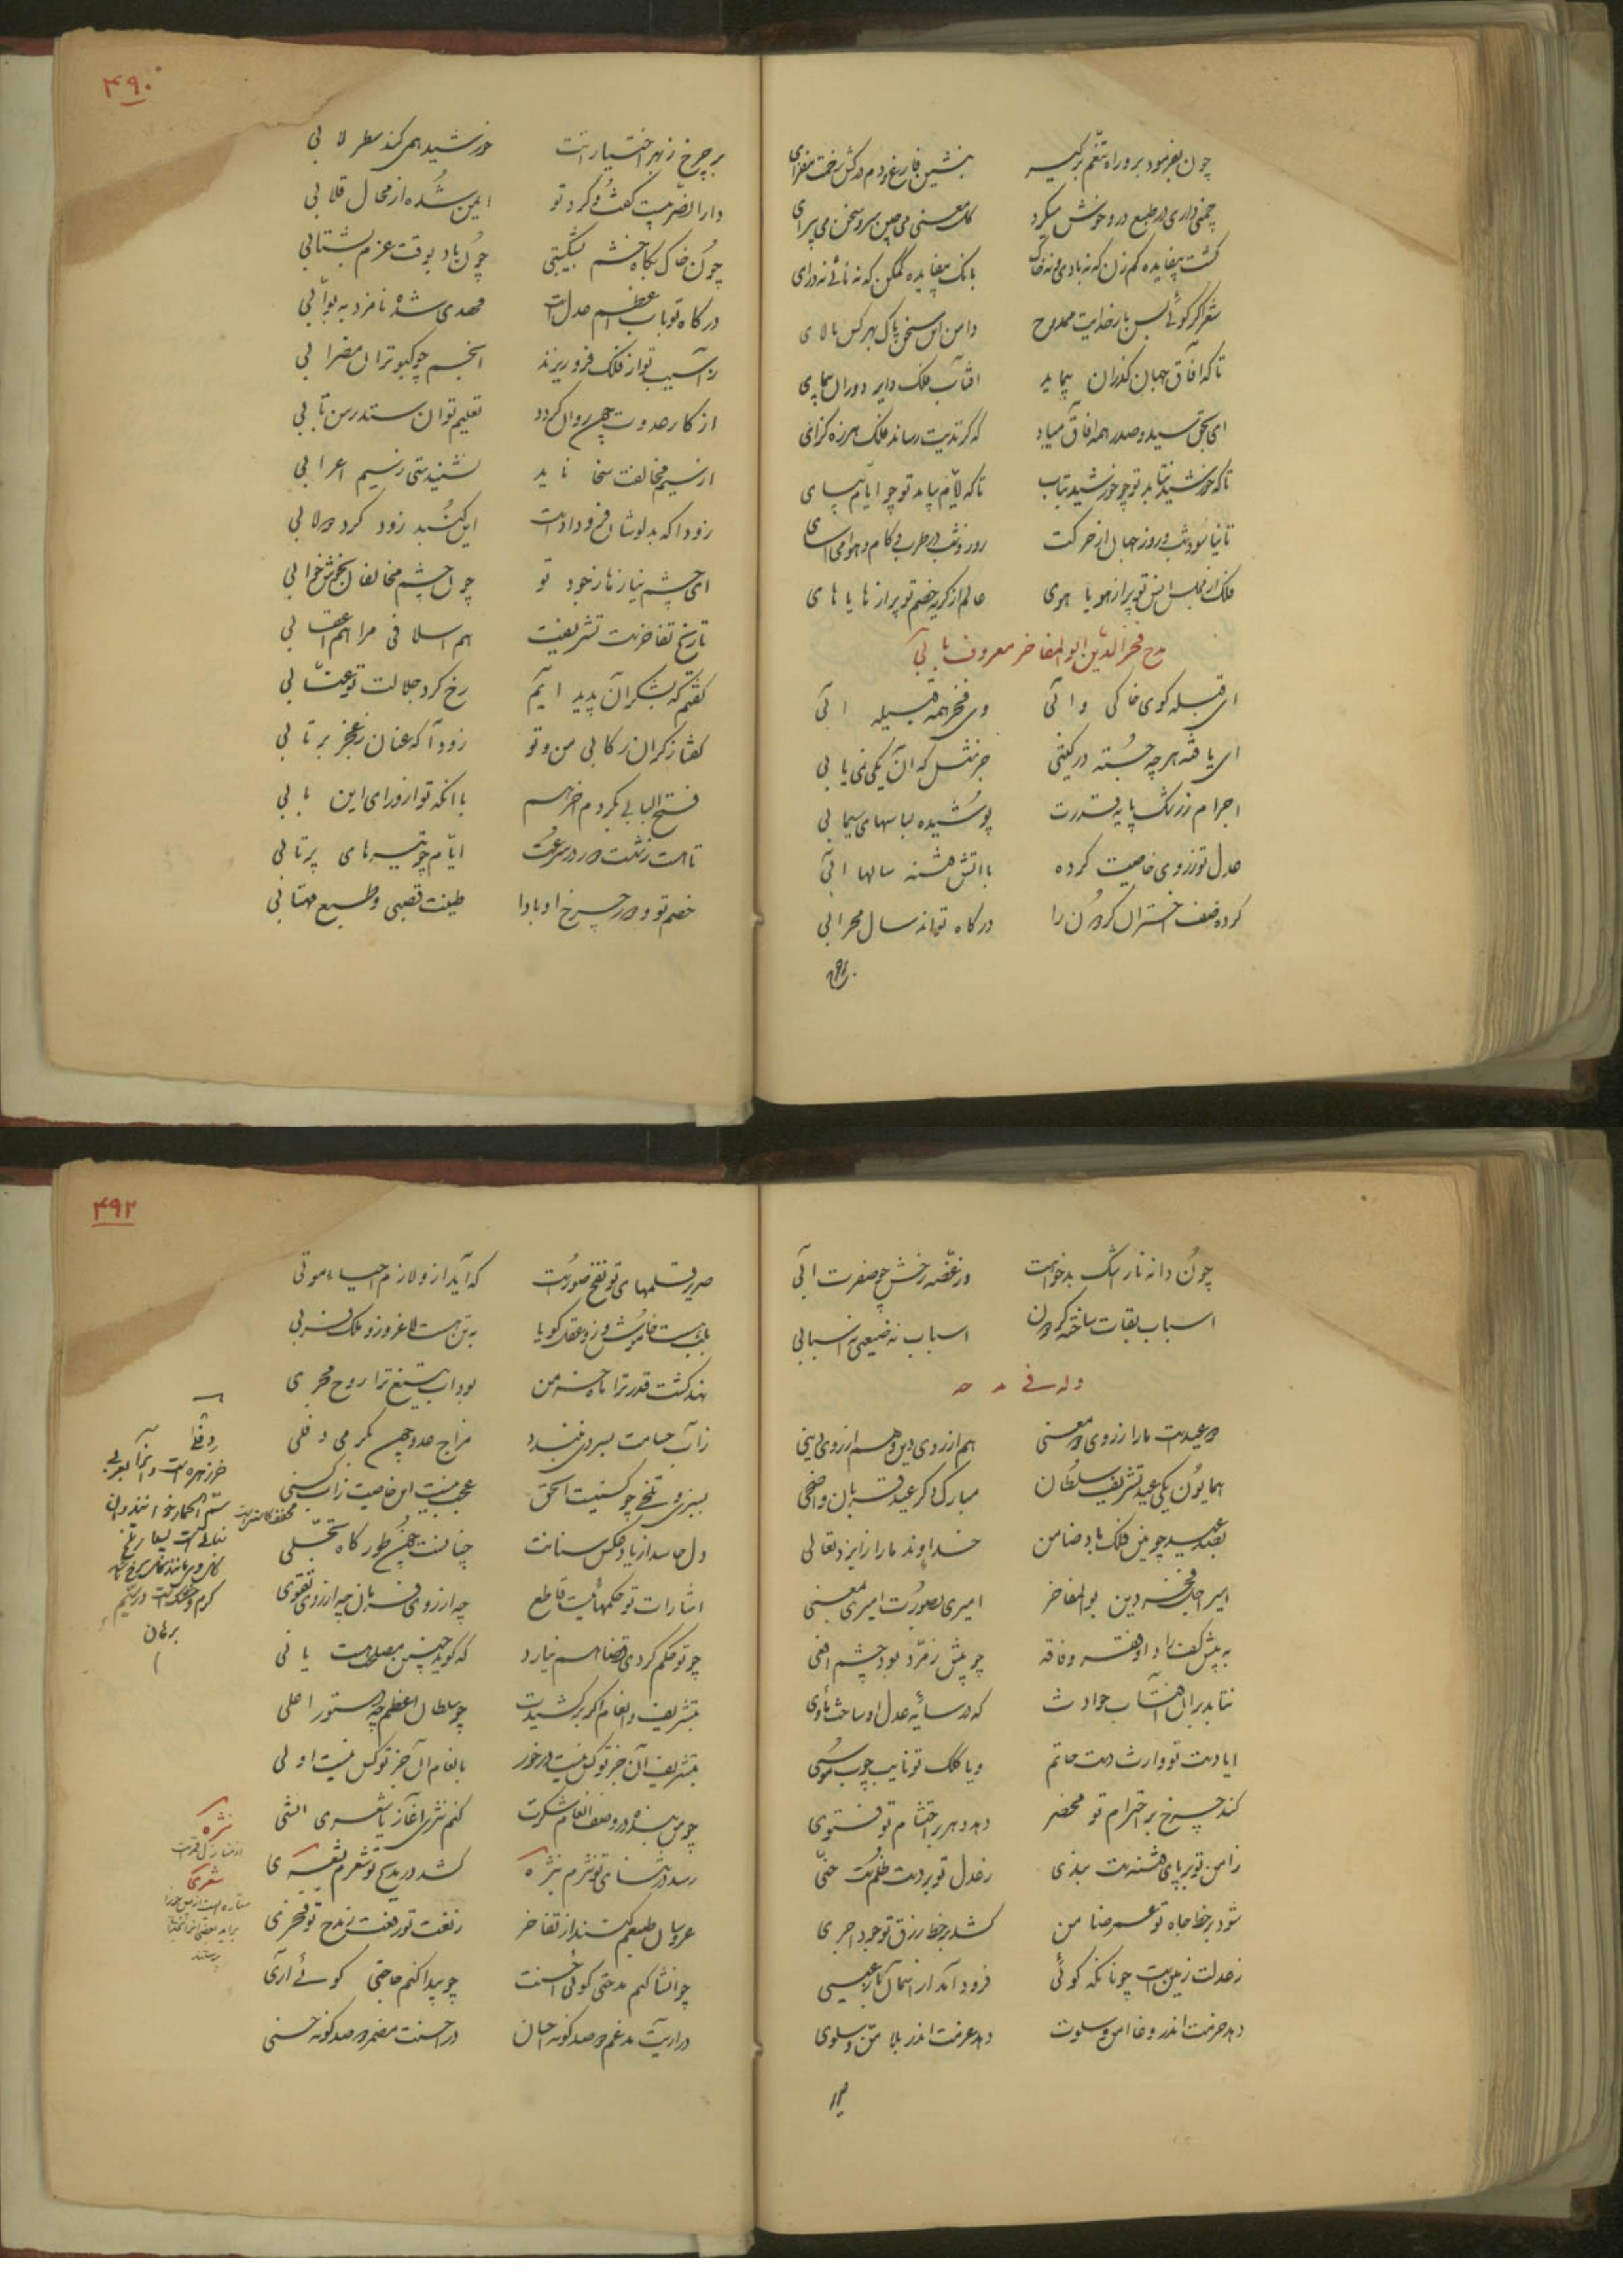 ۴۹۰
چون بفرمود برو راه تنعم برگیر بنشین فارغ و دم درکش و زحمت مفزای
چمنی داری در طبع درو خوش میگرد گل معنی می چین سرو سخن می پیرای
گشت بیفایده کم زن که نه بادی و نه خاک بانک بیفایده کم کن که نه نائی نه درای
شعر اگر گوئی پس بار خدایت ممدوح دامن این سخن پاک بهر کس مالای
تا که آفاق جهان گذران پیماید آفتاب فلک دایر دوران پیمای
ای بحق سید و صدر همه آفاق مباد که گزندیت رساند فلک هرزه گرای
تا که خورشید بتابد تو چو خورشید بتاب تا که ایام بپاید تو چو ایام بپای
تا نیاسود شب و روز جهان از حرکت روز و شب در طرب و کام و هوا می آسای
فلک از مجلس انس تو پر از هویا هوی عالم از گریه خصم تو پر از هایا های
مدح فخر الدین ابو المفاخر معروف بآبی
ای قبله کوی خاکی و آبی وی فخر همه قبیله آبی
ای یافته هر چه جسته در گیتی جز مثل که آن یکی نمی یابی
اجرام ز رشک پایه قدرت پوشیده لباسهای سیمابی
عدل تو ز روی خاصیت کرده با آتش فتنه سالها آبی
کرده ضعف اختران گردون را درگاه تو اند سال محرابی
بر چرخ ز بهر اختیارات خورشید همی کند سطرلابی
دارالضربیست کفت و کرد تو ایمن شده از محال قلابی
چون خاک بگاه خشم بشکیبی چون باد بوقت عزم بشتابی
درگاه تو باب اعظم عدل است مهدی شده نامزد به بوابی
ز آسیب تو از فلک فرو ریزند انجم چو کبوتران مضرابی
از کار عدوت چون روان گردد تعلیم توان ستد رسن تابی
از سیم مخالفت سخا ناید نشنیدستی ز سیم اعرابی
زودا که بد اوشان فرو دادت این گنبد زود گرد دولابی
ای چشم نیاز نا ز خود تو چون چشم مخالفان بخوشخوابی
تاریخ تفاخرست تشریفت هم اسلافی مرا هم اعقابی
گفتم که بشکر آن پدید آیم رخ کرد جلالت تو عتابی
گفتا ز گران رکابی من و تو زود آ که عنان ز عجز برتابی
فتح البابی بکردم آخر هم با آنکه تو از ورای این بابی
تا هست نشست و در سرعت ایام چو تیرهای پرتابی
خصم تو و دور چرخ او بادا طینت قصبی و طبع مهتابی
۴۹۲
چون دانه نار اشک بدخواهت وز غصه رخش چو صفرت آبی
اسباب بقات ساخته گردون اسباب نه ضیعی نه اسبابی
وله فی مدحه
دو عیدست ما را ز روی دو معنی هم از روی دین و هم از روی دینی
همایون یکی عید تشریف سلطان مبارک دگر عید قربان و اضحی
بصد عید چونین فلک باد ضامن خداوند ما را ز ایزد تعالی
امیر اجل فخر دین بوالمفاخر امیری بصورت امیری بمعنی
به پیش کف راد او فقر و فاقه چو پیش زمرد بود چشم افعی
نتابد بر آن آفتاب حوادث که در سایه عدل او ساخت ماوی
ایا دست تو وارث دست حاتم و یا کلک تو نایب چوب موسی
کند چرخ بر احترام تو محضر دهد دهر بر احتشام تو فتوی
ز امن تو بر پای فتنه ست بندی ز عدل تو بر دست ظلمست حنی
شود بر خط جاه تو عمر ضامن کشد بر خط رزق تو جود اجری
ز عدلت زمین است چونانکه گوئی فرود آمد از آسمان باز عیسی
دهد حرمت اندر وغا امن و سلوت دهد عزمت اندر بلا من و سلوی
صریر قلمهای تو نفخ صورست که آید ازو لازم احیاء موتی
بلب هست خاموش وزو عقل گویا به تن هست لاغر وزو ملک فربی
نهد گشت قدر ترا ماه خرمن بود آب تیغ ترا روح مجری
ز آب حسامت بسردی نبندد مزاج عدو چون بگرمی دفلی
بسبزی و تلخی چو کسنیست الحق عجب نیست این خاصیت زاب کسنی
دل حاسد از یاد عکس سنانت چنانست چون طور گاه تجلی
اشارات تو حکمهائیست قاطع چه از روی فرمان چه از روی تقوی
چو تو حکم کردی قضا هم نیارد که گوید چنین مصلحت هست یا نی
بتشریف و انعام اگر برکشیدت چو سلطان اعظم چه دستور اعلی
بتشریف آن جز تو کس نیست در خور بانعام آن جز تو کس نیست اولی
چو من بنده در وصف انعام شکرت کنم نثری آغاز یا شعری انشی
رسد در ثنای تو نثرم بنثره کشد در مدیح تو شعرم بشعری
عروسان طبعم کنند از تفاخر ز نعت تو رفعت ز مدح تو فخری
چو انشا کنم مدحتی گوئی احسنت چو پیدا کنم حاجتی گوئی آری
در آریت مدغم دو صد گونه احسان در احسنت مضمر دو صد گونه حسنی
دفلی
خر زهره است و آنرا بعربی
سم الحمار خوانند
برهان
نثره
شعری